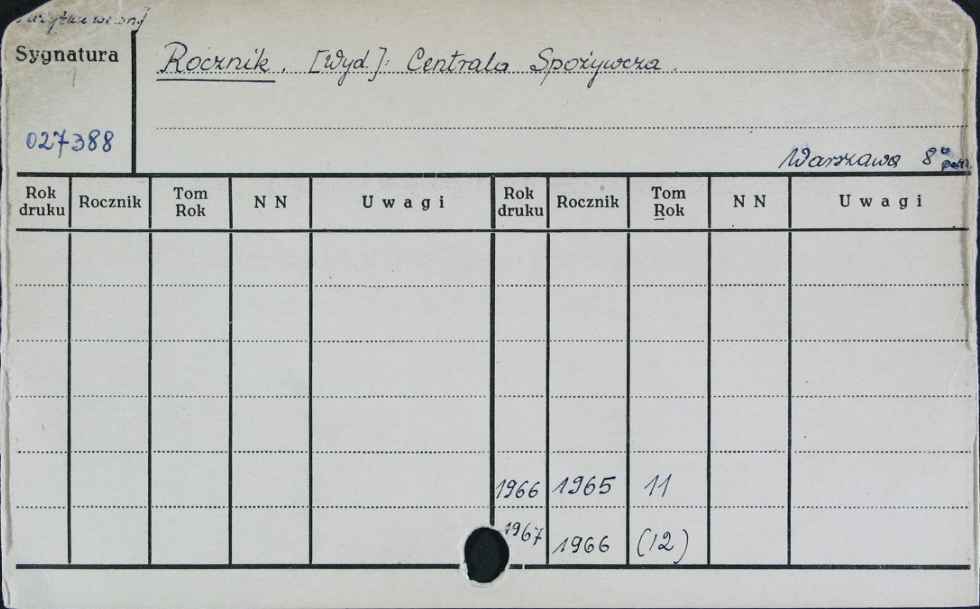 Sygnatura
Rocznik. [Wyd.]: Centrala Spożywcza.
027388
Warszawa 8°
Rok druku Rocznik Tom Rok NN Uwagi Rok druku Rocznik Tom Rok NN Uwagi
1966 1965 11
1967 1966 (12)